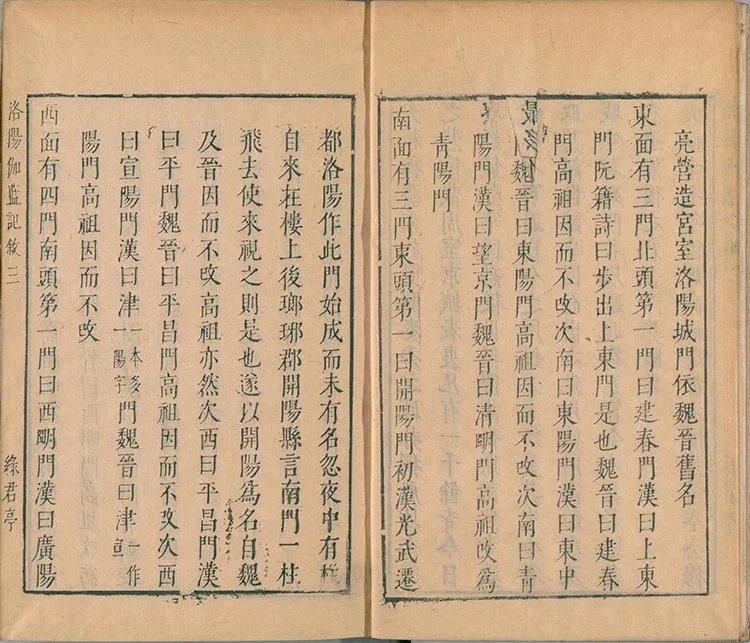 亮營造宮室洛陽城門依魏晉舊名
東面有三門北頭第一門曰建春門漢曰上東
門阮籍詩曰步出上東門是也魏晉曰建春
門高祖因而不改次南曰東陽門漢曰東中
門魏晉曰東陽門高祖因而不改次南曰青
陽門漢曰望京門魏晉曰清明門高祖改為
青陽門
南面有三門東頭第一曰開陽門初漢光武遷
都洛陽作此門始成而未有名忽夜中有柱
自來在樓上後瑯琊郡開陽縣言南門一柱
飛去使來視之則是也遂以開陽為名自魏
及晉因而不改高祖亦然次西曰平昌門漢
曰平門魏晉曰平昌門高祖因而不改次西
曰宣陽門漢曰津一本多一陽字門魏晉曰津一作宣
陽門高祖因而不改
西面有四門南頭第一門曰西明門漢曰廣陽
洛陽伽藍記敘 三
綠君亭